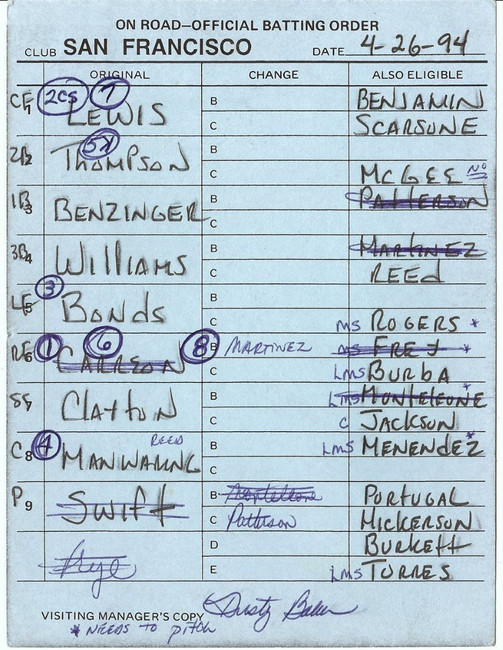 ON ROAD—OFFICIAL BATTING ORDER
CLUB SAN FRANCISCO DATE 4-26-94
ORIGINAL CHANGE ALSO ELIGIBLE
CF 1 2CS 7 LEWIS B BENJAMIN
C SCARSONE
2B 2 5X THOMPSON B
C MCGEE NO
1B 3 BENZINGER B PATTERSON
C
3B 4 WILLIAMS B MARTINEZ
C REED
LF 5 3 BONDS B
C MS ROGERS *
RF 6 1 6 CARREON 8 B MARTINEZ MS FREY *
C LMS BURBA *
SS 7 CLAYTON B LMS MONTELEONE
C C JACKSON
C 8 4 MANWARING REED B LMS MENENDEZ *
C
P 9 SWIFT B Monteleone PORTUGAL
C Patterson HICKERSON
D BURKETT
Frye E LMS TORRES
VISITING MANAGER'S COPY Dusty Baker
* NEEDS TO PITCH